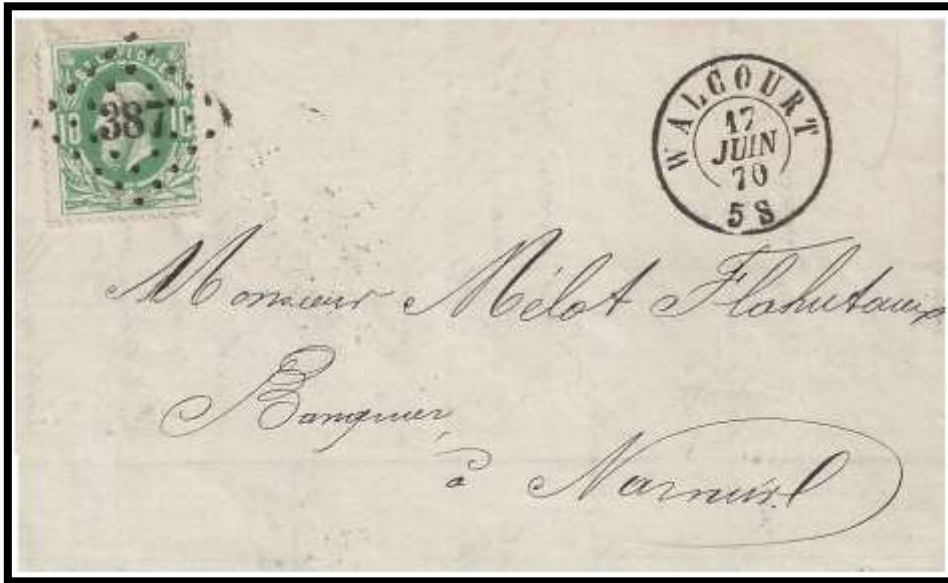 BELGIQUE
10 387 10
WALCOURT
17
JUIN
70
5 S
Monsieur Mélot Flahutaux
Banquier,
à Namur